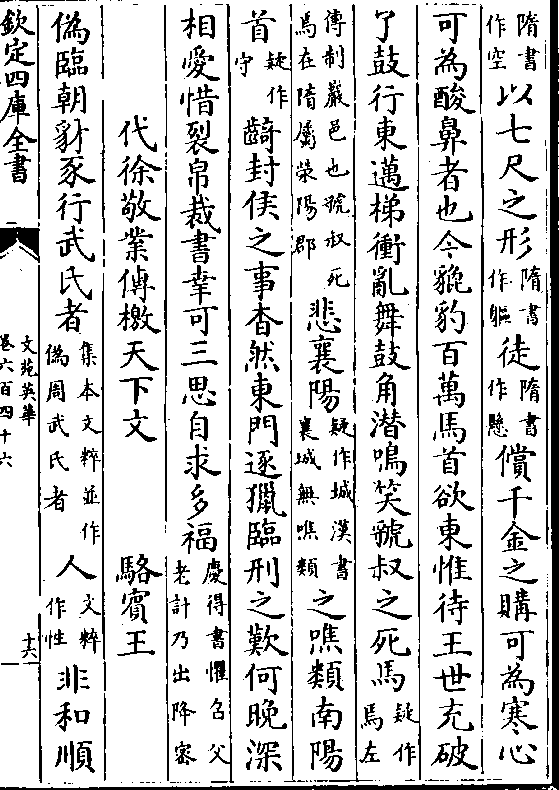 隋書作空以七尺之形隋書作軀徒隋書作懸償千金之購可為寒心
可為酸鼻者也今貔豹百萬馬首欲東惟待王世充破
了鼓行東邁梯衝亂舞鼓角潛鳴笑虢叔之死馬疑作焉左
傳制巖邑也虢叔死焉在隋屬滎陽郡悲襄陽疑作城漢書襄城無噍類之噍類南陽
首疑作守齮封侯之事杳然東門逐獵臨刑之歎何晚深
相愛惜裂帛裁書幸可三思自求多福慶得書懼召父老計乃出降密
代徐敬業傳檄天下文　駱賓王
偽臨朝豺豕行武氏者集本文粹並作偽周武氏者人文粹作性非和順
欽定四庫全書
文苑英華
卷六百四十六
十六